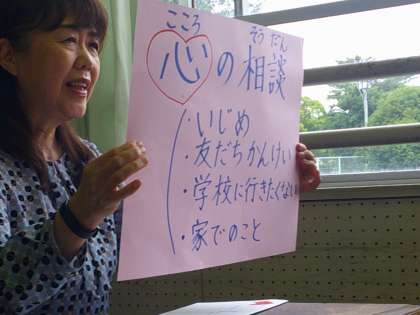 こころ そうだん
心の相談
・いじめ
・友だちかんけい
・学校に行きたくない
・家でのこと